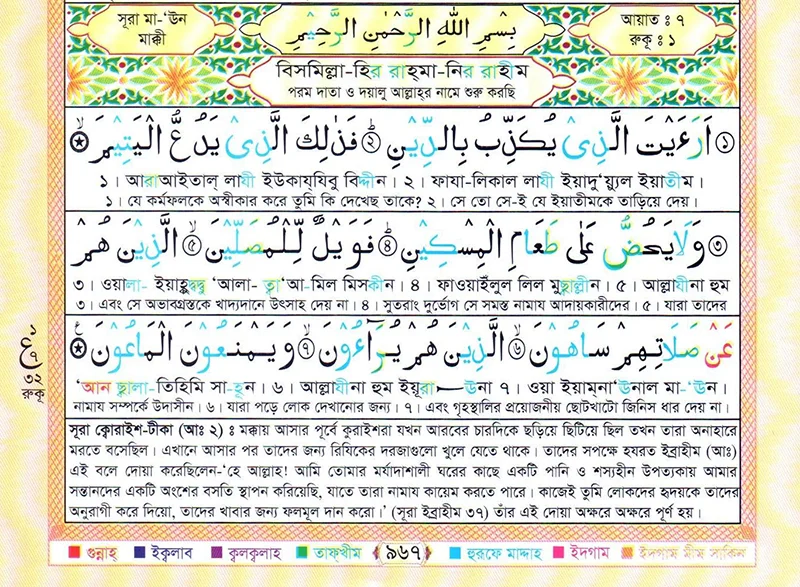 সূরা মা-‘ঊন
মাক্কী
بِسْمِ اللهِ الرَّحْمٰنِ الرَّحِيْمِ
আয়াত : ৭
রুকূ : ১
বিসমিল্লা-হির রাহ্‌মা-নির রাহীম
পরম দাতা ও দয়ালু আল্লাহ্‌র নামে শুরু করছি
① اَرَءَيْتَ الَّذِىْ يُكَذِّبُ بِالدِّيْنِ ② فَذٰلِكَ الَّذِىْ يَدُعُّ الْيَتِيْمَ
১। আরাআইতাল্ লাযী ইউকায্‌যিবু বিদ্দীন। ২। ফাযা-লিকাল লাযী ইয়াদু‘য়্যুল ইয়াতীম।
১। যে কর্মফলকে অস্বীকার করে তুমি কি দেখেছ তাকে? ২। সে তো সে-ই যে ইয়াতীমকে তাড়িয়ে দেয়।
③ وَلَا يَحُضُّ عَلٰى طَعَامِ الْمِسْكِيْنِ ④ فَوَيْلٌ لِّلْمُصَلِّيْنَ ⑤ الَّذِيْنَ هُمْ
৩। ওয়ালা- ইয়াহুদ্বদ্বু ‘আলা- ত্বা‘আ-মিল মিসকীন। ৪। ফাওয়াইলুল লিল মুছাল্লীন। ৫। আল্লাযীনা হুম
৩। এবং সে অভাবগ্রস্তকে খাদ্যদানে উৎসাহ দেয় না। ৪। সুতরাং দুর্ভোগ সে সমস্ত নামায আদায়কারীদের। ৫। যারা তাদের
عَنْ صَلَاتِهِمْ سَاهُوْنَ ⑥ الَّذِيْنَ هُمْ يُرَآءُوْنَ ⑦ وَيَمْنَعُوْنَ الْمَاعُوْنَ
‘আন ছালা-তিহিমি সা-হূন। ৬। আল্লাযীনা হুম ইয়ূরা—ঊনা ৭। ওয়া ইয়াম্‌না‘ঊনাল মা-‘ঊন।
নামায সম্পর্কে উদাসীন। ৬। যারা পড়ে লোক দেখানোর জন্য। ৭। এবং গৃহস্থালির প্রয়োজনীয় ছোটখাটো জিনিস ধার দেয় না।
ع
৭
৩২
রুকূ
সূরা ক্বোরাইশ-টীকা (আঃ ২) : মক্কায় আসার পূর্বে কুরাইশরা যখন আরবের চারদিকে ছড়িয়ে ছিটিয়ে ছিল তখন তারা অনাহারে
মরতে বসেছিল। এখানে আসার পর তাদের জন্য রিযিকের দরজাগুলো খুলে যেতে থাকে। তাদের সপক্ষে হযরত ইব্রাহীম (আঃ)
এই বলে দোয়া করেছিলেন-‘হে আল্লাহ! আমি তোমার মর্যাদাশালী ঘরের কাছে একটি পানি ও শস্যহীন উপত্যকায় আমার
সন্তানদের একটি অংশের বসতি স্থাপন করিয়েছি, যাতে তারা নামায কায়েম করতে পারে। কাজেই তুমি লোকদের হৃদয়কে তাদের
অনুরাগী করে দিয়ো, তাদের খাবার জন্য ফলমূল দান করো।’ (সূরা ইব্রাহীম ৩৭) তাঁর এই দোয়া অক্ষরে অক্ষরে পূর্ণ হয়।
গুন্নাহ্ ইক্বলাব ক্বলক্বলাহ তাফ্‌খীম ৯৬৭ হুরূফে মাদ্দাহ ইদগাম ইদগাম মীম সাকিন